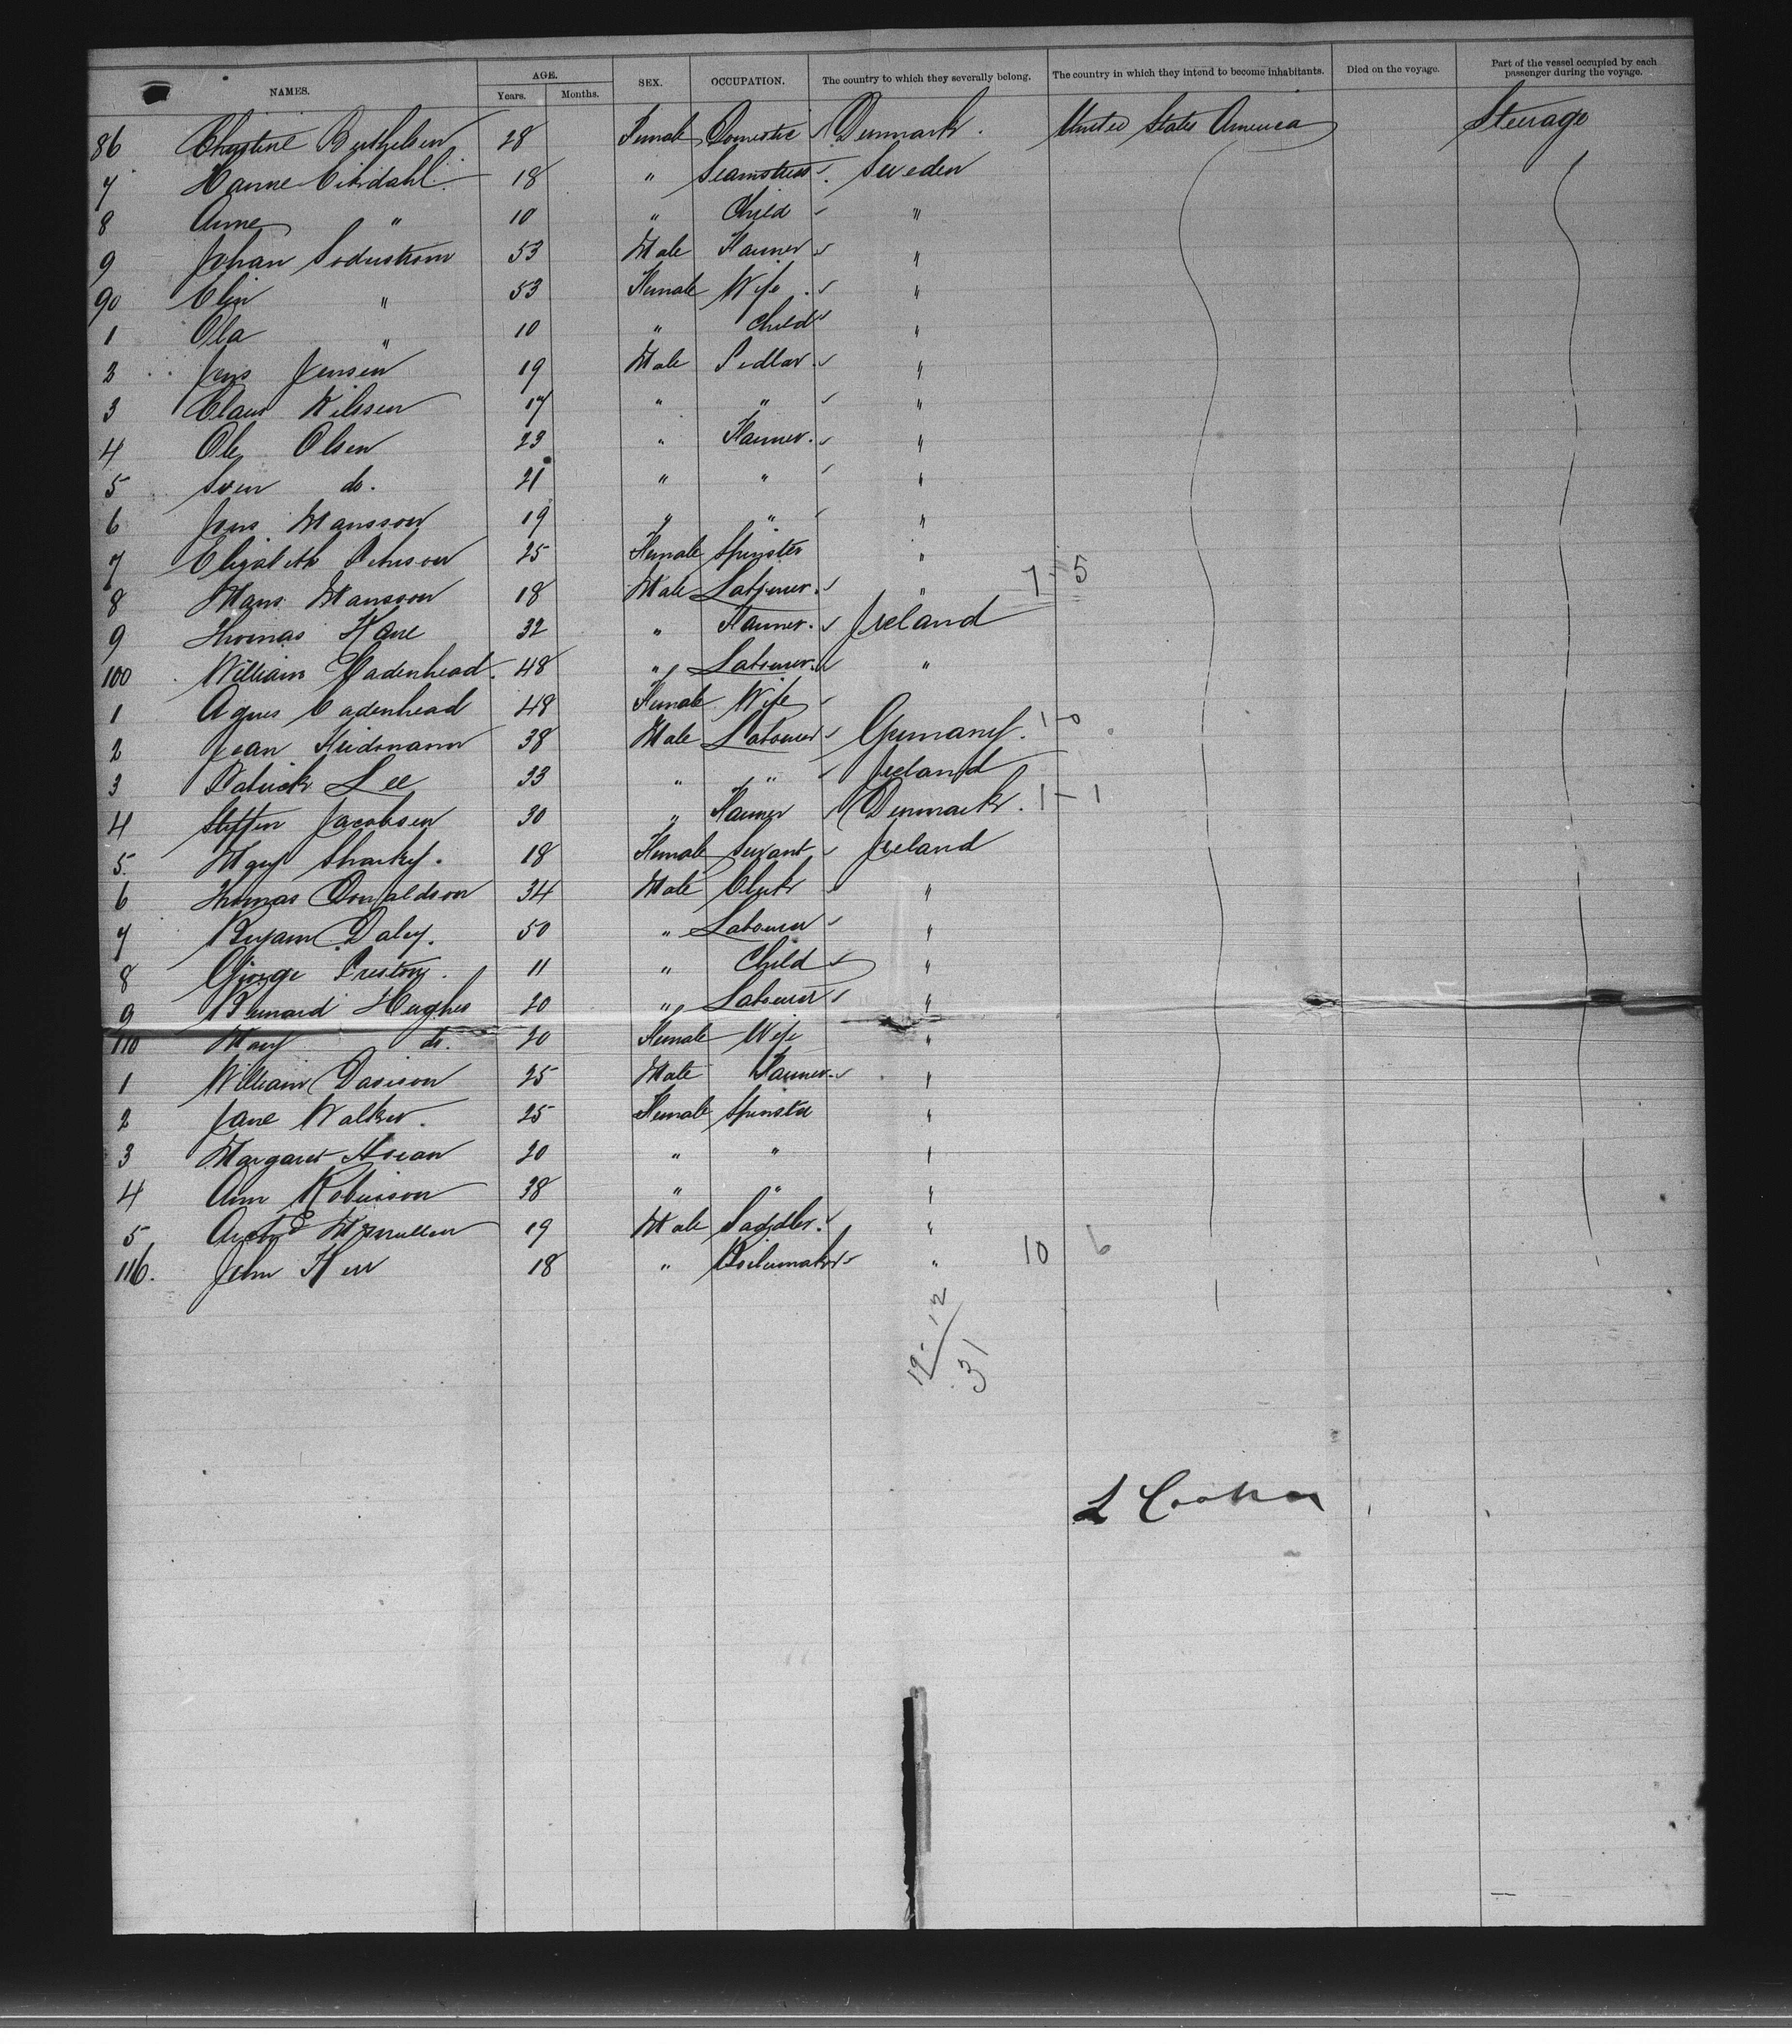 NAMES. AGE. Years. Months. SEX. OCCUPATION. The country to which they severally belong. The country in which they intend to become inhabitants. Died on the voyage. Part of the vessel occupied by each passenger during the voyage.
86 Christine Berthelsen 28 Female Domestic Denmark. United States America Steerage
7 Hanne 18 " Seamstress Sweden
8 Anne " 10 " Child "
9 Johan Soderstrom 53 Male Farmer "
90 Elin " 53 Female Wife "
1 Ola " 10 " Child "
2 Jens Jensen 19 Male Pedlar "
3 Claus Nilssen 17 " " "
4 Ole Olsen 23 " Farmer. "
5 Sven do. 21 " " "
6 Jens Mansson 19 " " "
7 Elizabeth Petersson 25 Female Spinster "
8 Hans Mansson 18 Male Labourer. " 7-5
9 Thomas Kane 32 " Farmer. Ireland
100 William Cadenhead. 48 " Labourer. "
1 Agnes Cadenhead 48 Female Wife
2 Jean Heidemann 38 Male Labourer Germany. 1-0
3 Patrick Lee 33 " " Ireland
4 Steffen Jacobsen 30 " Farmer Denmark. 1-1
5. Mary Sharkey. 18 Female Servant Ireland
6 Thomas Donaldson 34 Male Clerk "
7 Daley. 50 " Labourer "
8 George Preston. 11 " Child "
9 Bernard Hughes 20 " Labourer "
110 Mary do. 20 Female Wife "
1 William Davison 25 Male Farmer. "
2 Jane Walker. 25 Female Spinster "
3 Margaret 20 " " "
4 Ann Robinson 38 " " "
5 McMullen 19 Male Saddler. "
116. John Kerr 18 " Boilermaker " 10 6
19-12
31